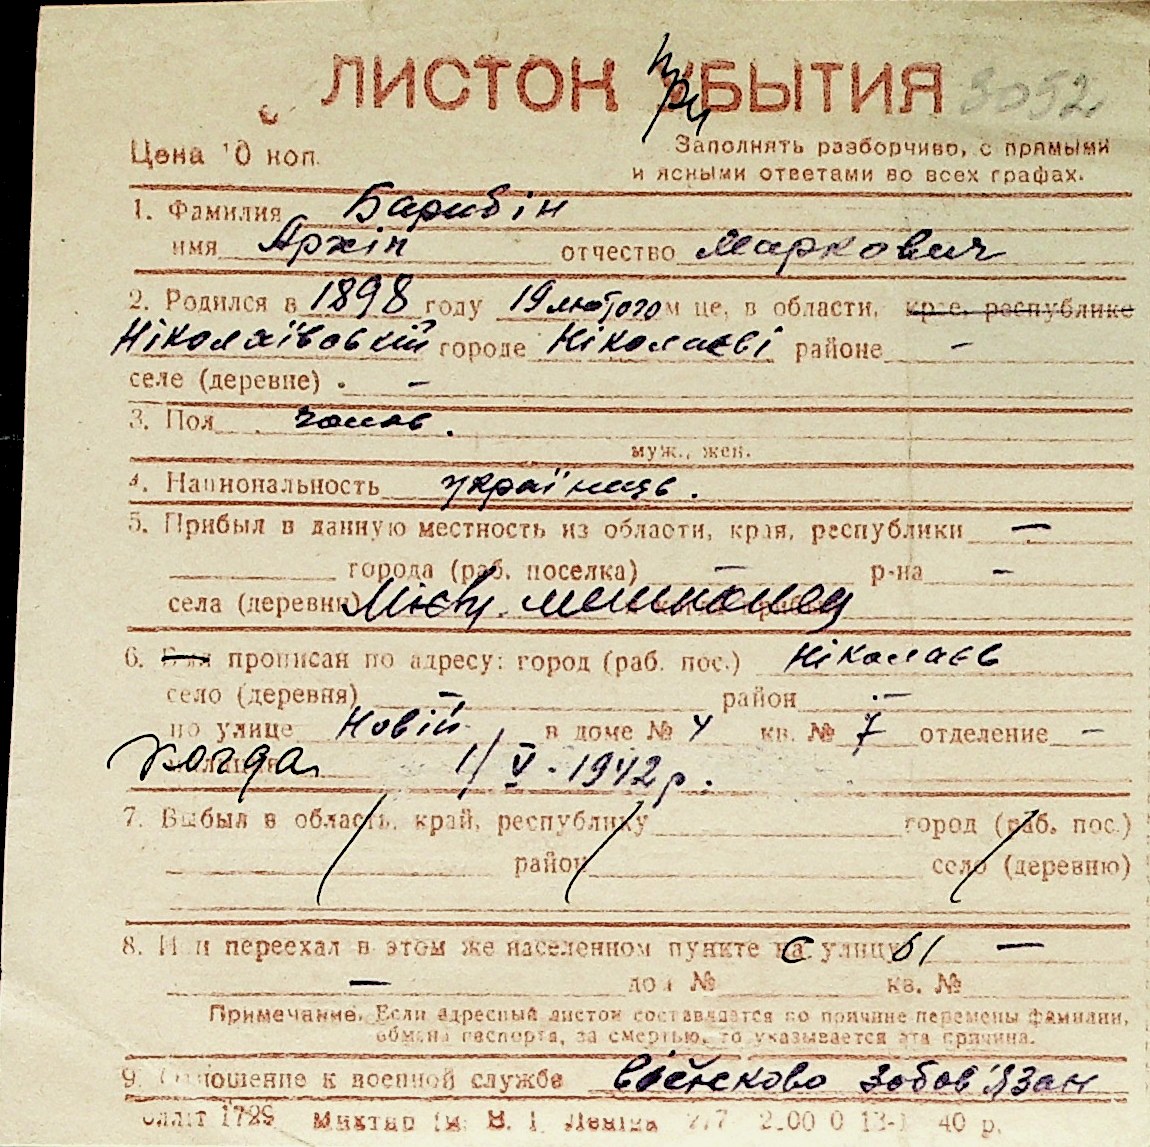 ЛИСТОК ПРИБЫТИЯ 3052
Цена 10 коп. Заполнять разборчиво, с прямыми
и ясными ответами во всех графах.
1. Фамилия Барибін
имя Архіп отчество Маркович
2. Родился в 1898 году 19 лютого м це, в области, крае, республике
Ніколаївовській городе Ніколаєві районе –
селе (деревне) . –
3. Пол чолов.
муж., жен.
4. Национальность українець.
5. Прибыл в данную местность из области, края, республики –
города (раб. поселка) – р-на –
села (деревни) Місц. мешканец
6. Был прописан по адресу: город (раб. пос.) Ніколаєв
село (деревня) – район –
по улице Новій в доме № 4 кв. № 7 отделение –
когда 1/V-1942 р.
7. Выбыл в область, край, республику город (раб. пос.)
район село (деревню)
8. Или переехал в этом же населенном пункте с улицы –
– дом № кв. №
Примечание. Если адресный листок составляется по причине перемены фамилии,
обмена паспорта, за смертью, то указывается эта причина.
9. Отношение к военной службе військово зобов'язан
1729 им. В. І. Леніна 40 р.